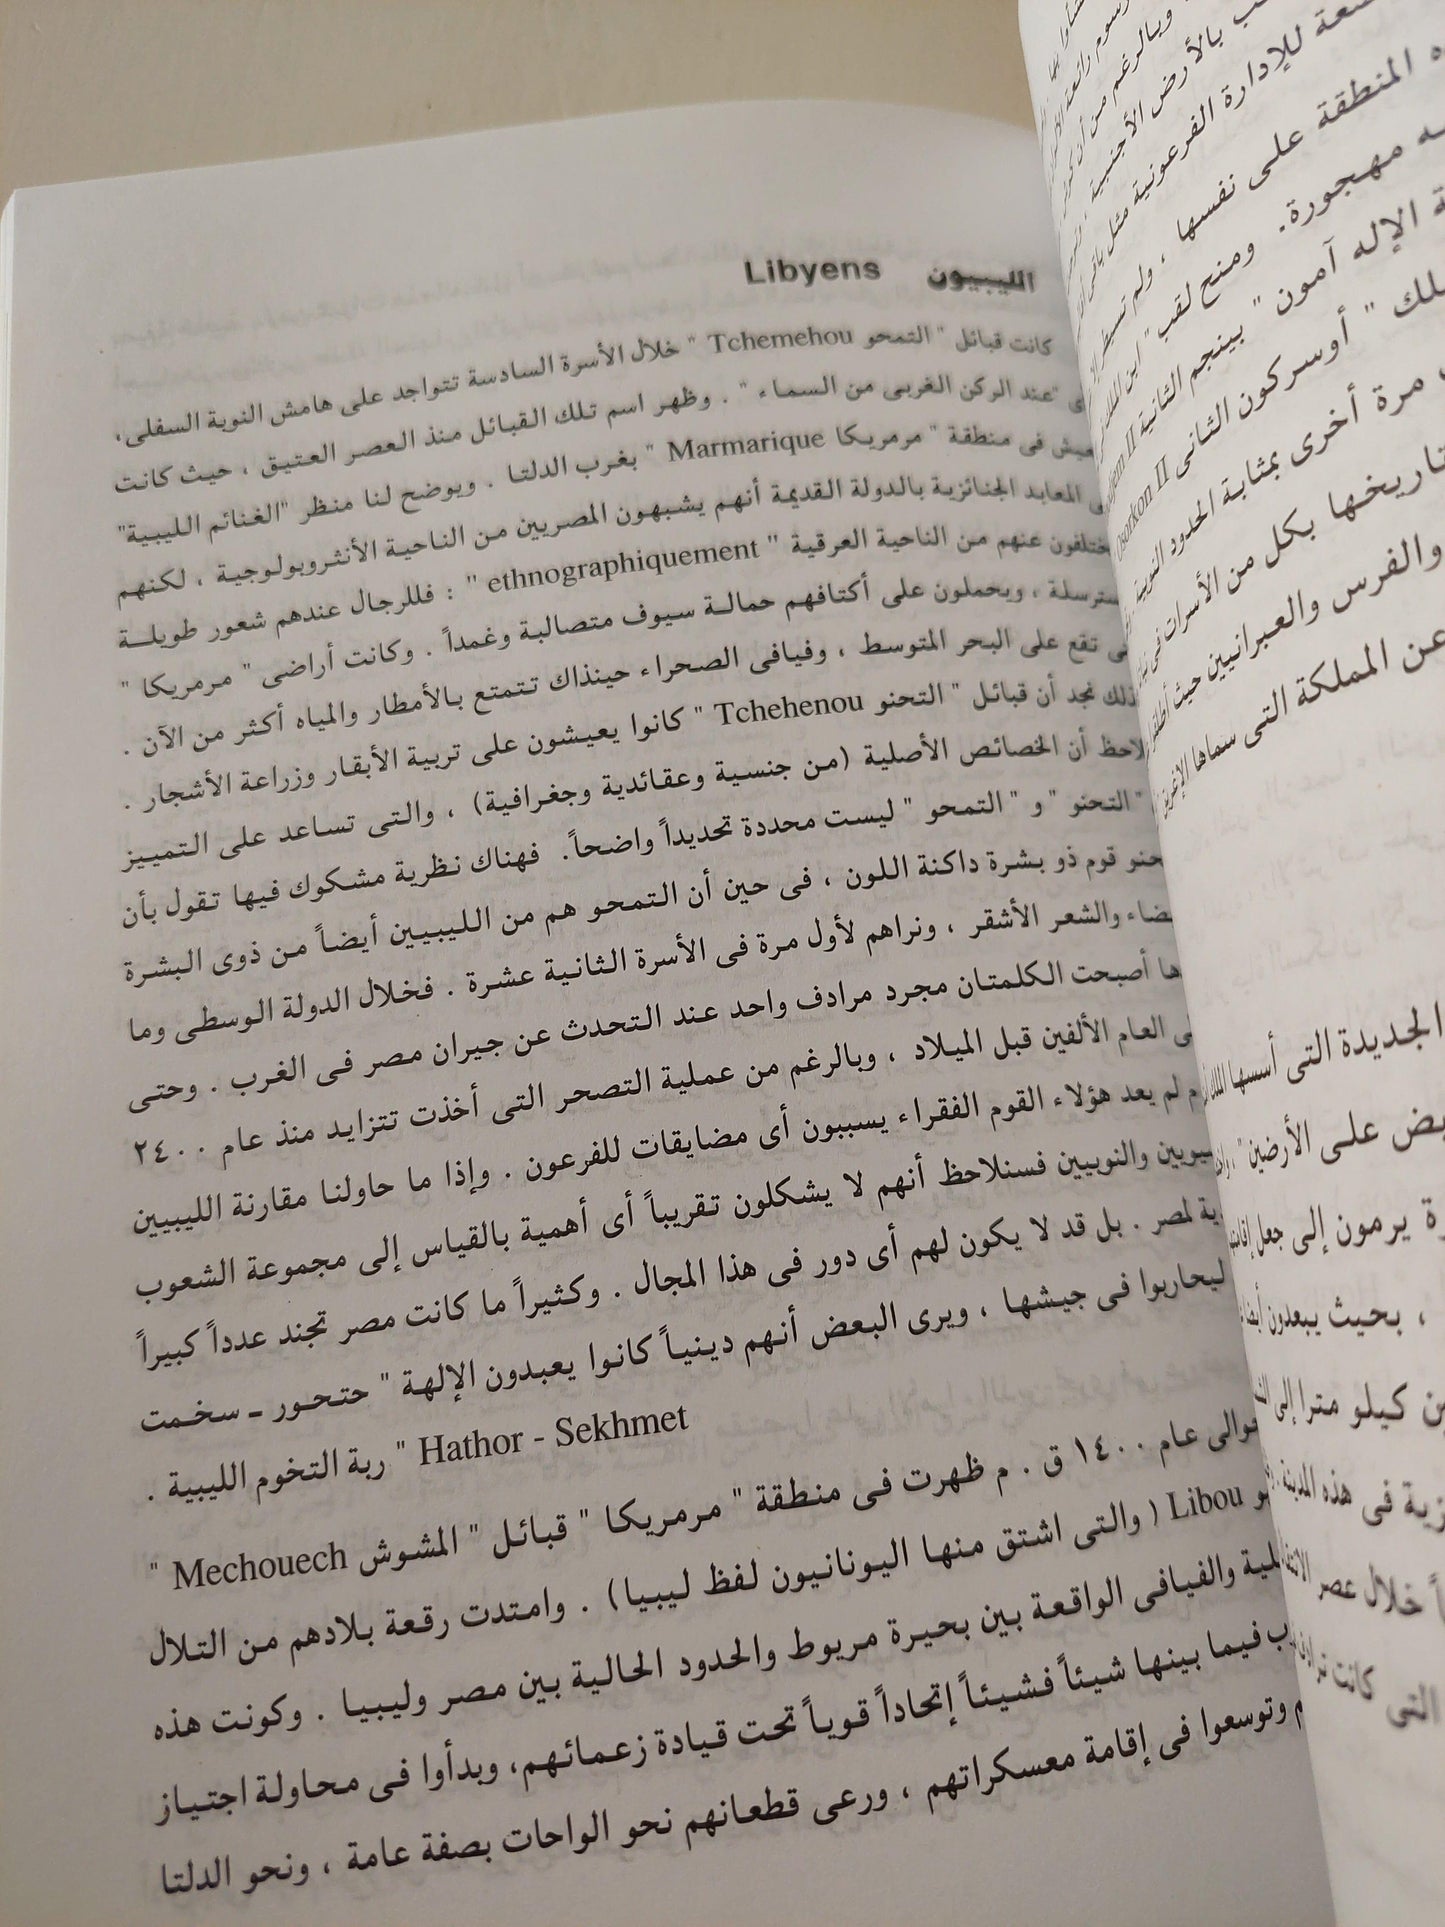 الليبيون Libyens
كانت قبائل " التمحو Tchemehou " خلال الأسرة السادسة تتواجد على هامش النوبة السفلى،
"عند الركن الغربى من السماء " . وظهر اسم تلك القبائل منذ العصر العتيق ، حيث كانت
فى منطقة " مرمريكا Marmarique " بغرب الدلتا . ويوضح لنا منظر "الغنائم الليبية"
المعابد الجنائزية بالدولة القديمة أنهم يشبهون المصريين من الناحية الأنثروبولوجية ، لكنهم
عنهم من الناحية العرقية " ethnographiquement " : فللرجال عندهم شعور طويلة
، ويحملون على أكتافهم حمالة سيوف متصالبة وغمداً . وكانت أراضى " مرمريكا "
تقع على البحر المتوسط ، وفيافى الصحراء حينذاك تتمتع بالأمطار والمياه أكثر من الآن .
نجد أن قبائل " التحنو Tchehenou " كانوا يعيشون على تربية الأبقار وزراعة الأشجار .
أن الخصائص الأصلية (من جنسية وعقائدية وجغرافية) ، والتى تساعد على التمييز
" التحنو " و " التمحو " ليست محددة تحديداً واضحاً. فهناك نظرية مشكوك فيها تقول بأن
قوم ذو بشرة داكنة اللون ، فى حين أن التمحو هم من الليبيين أيضاً من ذوى البشرة
والشعر الأشقر ، ونراهم لأول مرة فى الأسرة الثانية عشرة . فخلال الدولة الوسطى وما
أصبحت الكلمتان مجرد مرادف واحد عند التحدث عن جيران مصر فى الغرب . وحتى
العام الألفين قبل الميلاد ، وبالرغم من عملية التصحر التى أخذت تتزايد منذ عام ٢٤٠٠
لم يعد هؤلاء القوم الفقراء يسببون أى مضايقات للفرعون . وإذا ما حاولنا مقارنة الليبيين
والنوبيين فسنلاحظ أنهم لا يشكلون تقريباً أى أهمية بالقياس إلى مجموعة الشعوب
لمصر . بل قد لا يكون لهم أى دور فى هذا المجال . وكثيراً ما كانت مصر تجند عدداً كبيراً
ليحاربوا فى جيشها ، ويرى البعض أنهم دينياً كانوا يعبدون الإلهة " حتحور ـ سخمت
Hathor - Sekhmet " ربة التخوم الليبية .
عام ١٤٠٠ ق . م ظهرت فى منطقة " مرمريكا " قبائل " المشوش Mechouech "
Libou ( والتى اشتق منها اليونانيون لفظ ليبيا) . وامتدت رقعة بلادهم من التلال
والفيافى الواقعة بين بحيرة مريوط والحدود الحالية بين مصر وليبيا . وكونت هذه
فيما بينها شيئاً فشيئاً إتحاداً قوياً تحت قيادة زعمائهم، وبدأوا فى محاولة اجتياز
وتوسعوا فى إقامة معسكراتهم ، ورعى قطعانهم نحو الواحات بصفة عامة ، ونحو الدلتا
بالأرض الأجنبية
للإدارة الفرعونية مثل
المنطقة على نفسها ، ولم
مهجورة. ومنح لقب "
الإله آمون " بينجم الثانية II
" أوسركون الثانى Osorkon II
مرة أخرى بمثابة الحدود النوبية
تاريخها بكل من الأسرات
والفرس والعبرانيين حيث
عن المملكة التى سماها
الجديدة التى أسسها
على الأرضين "
يرمون إلى جعل
، بحيث يبعدون
كيلو مترا إلى
فى هذه المدينة
خلال عصر
التى كانت